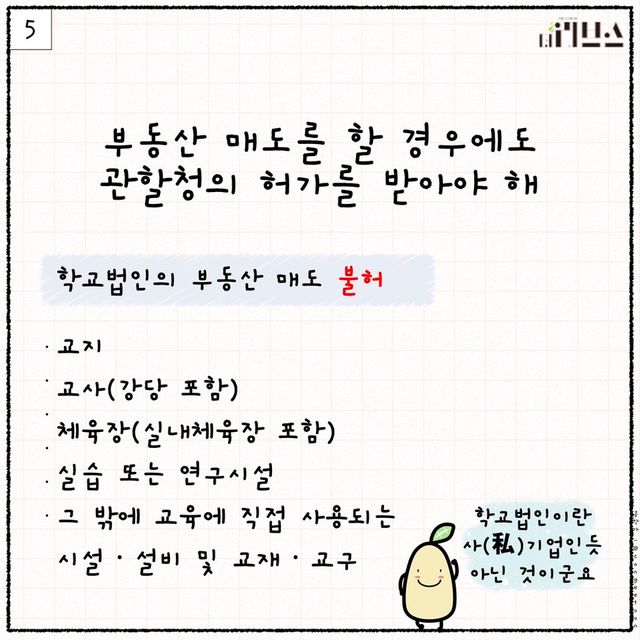 5
부동산 매도를 할 경우에도
관할청의 허가를 받아야 해
학교법인의 부동산 매도 불허
· 교지
· 교사(강당 포함)
· 체육장(실내체육장 포함)
· 실습 또는 연구시설
· 그 밖에 교육에 직접 사용되는
시설·설비 및 교재·교구
학교법인이란
사(私)기업인듯
아닌 것이군요